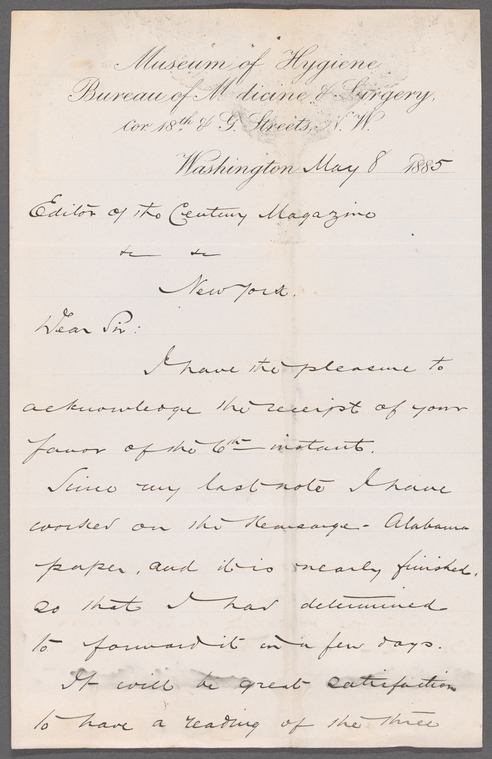 Museum of Hygiene
Bureau of Medicine & Surgery,
Cor 18th & G. Streets, N. W.
Washington May 8 1885
Editor of the Century Magazine
&c &c
New York.
Dear Sir:
I have the pleasure to
acknowledge the receipt of your
favor of the 6th instant.
Since my last note I have
worked on the Kearsarge - Alabama
paper, and it is nearly finished,
so that I had determined
to forward it in a few days.
It will be great satisfaction
to have a reading of the three